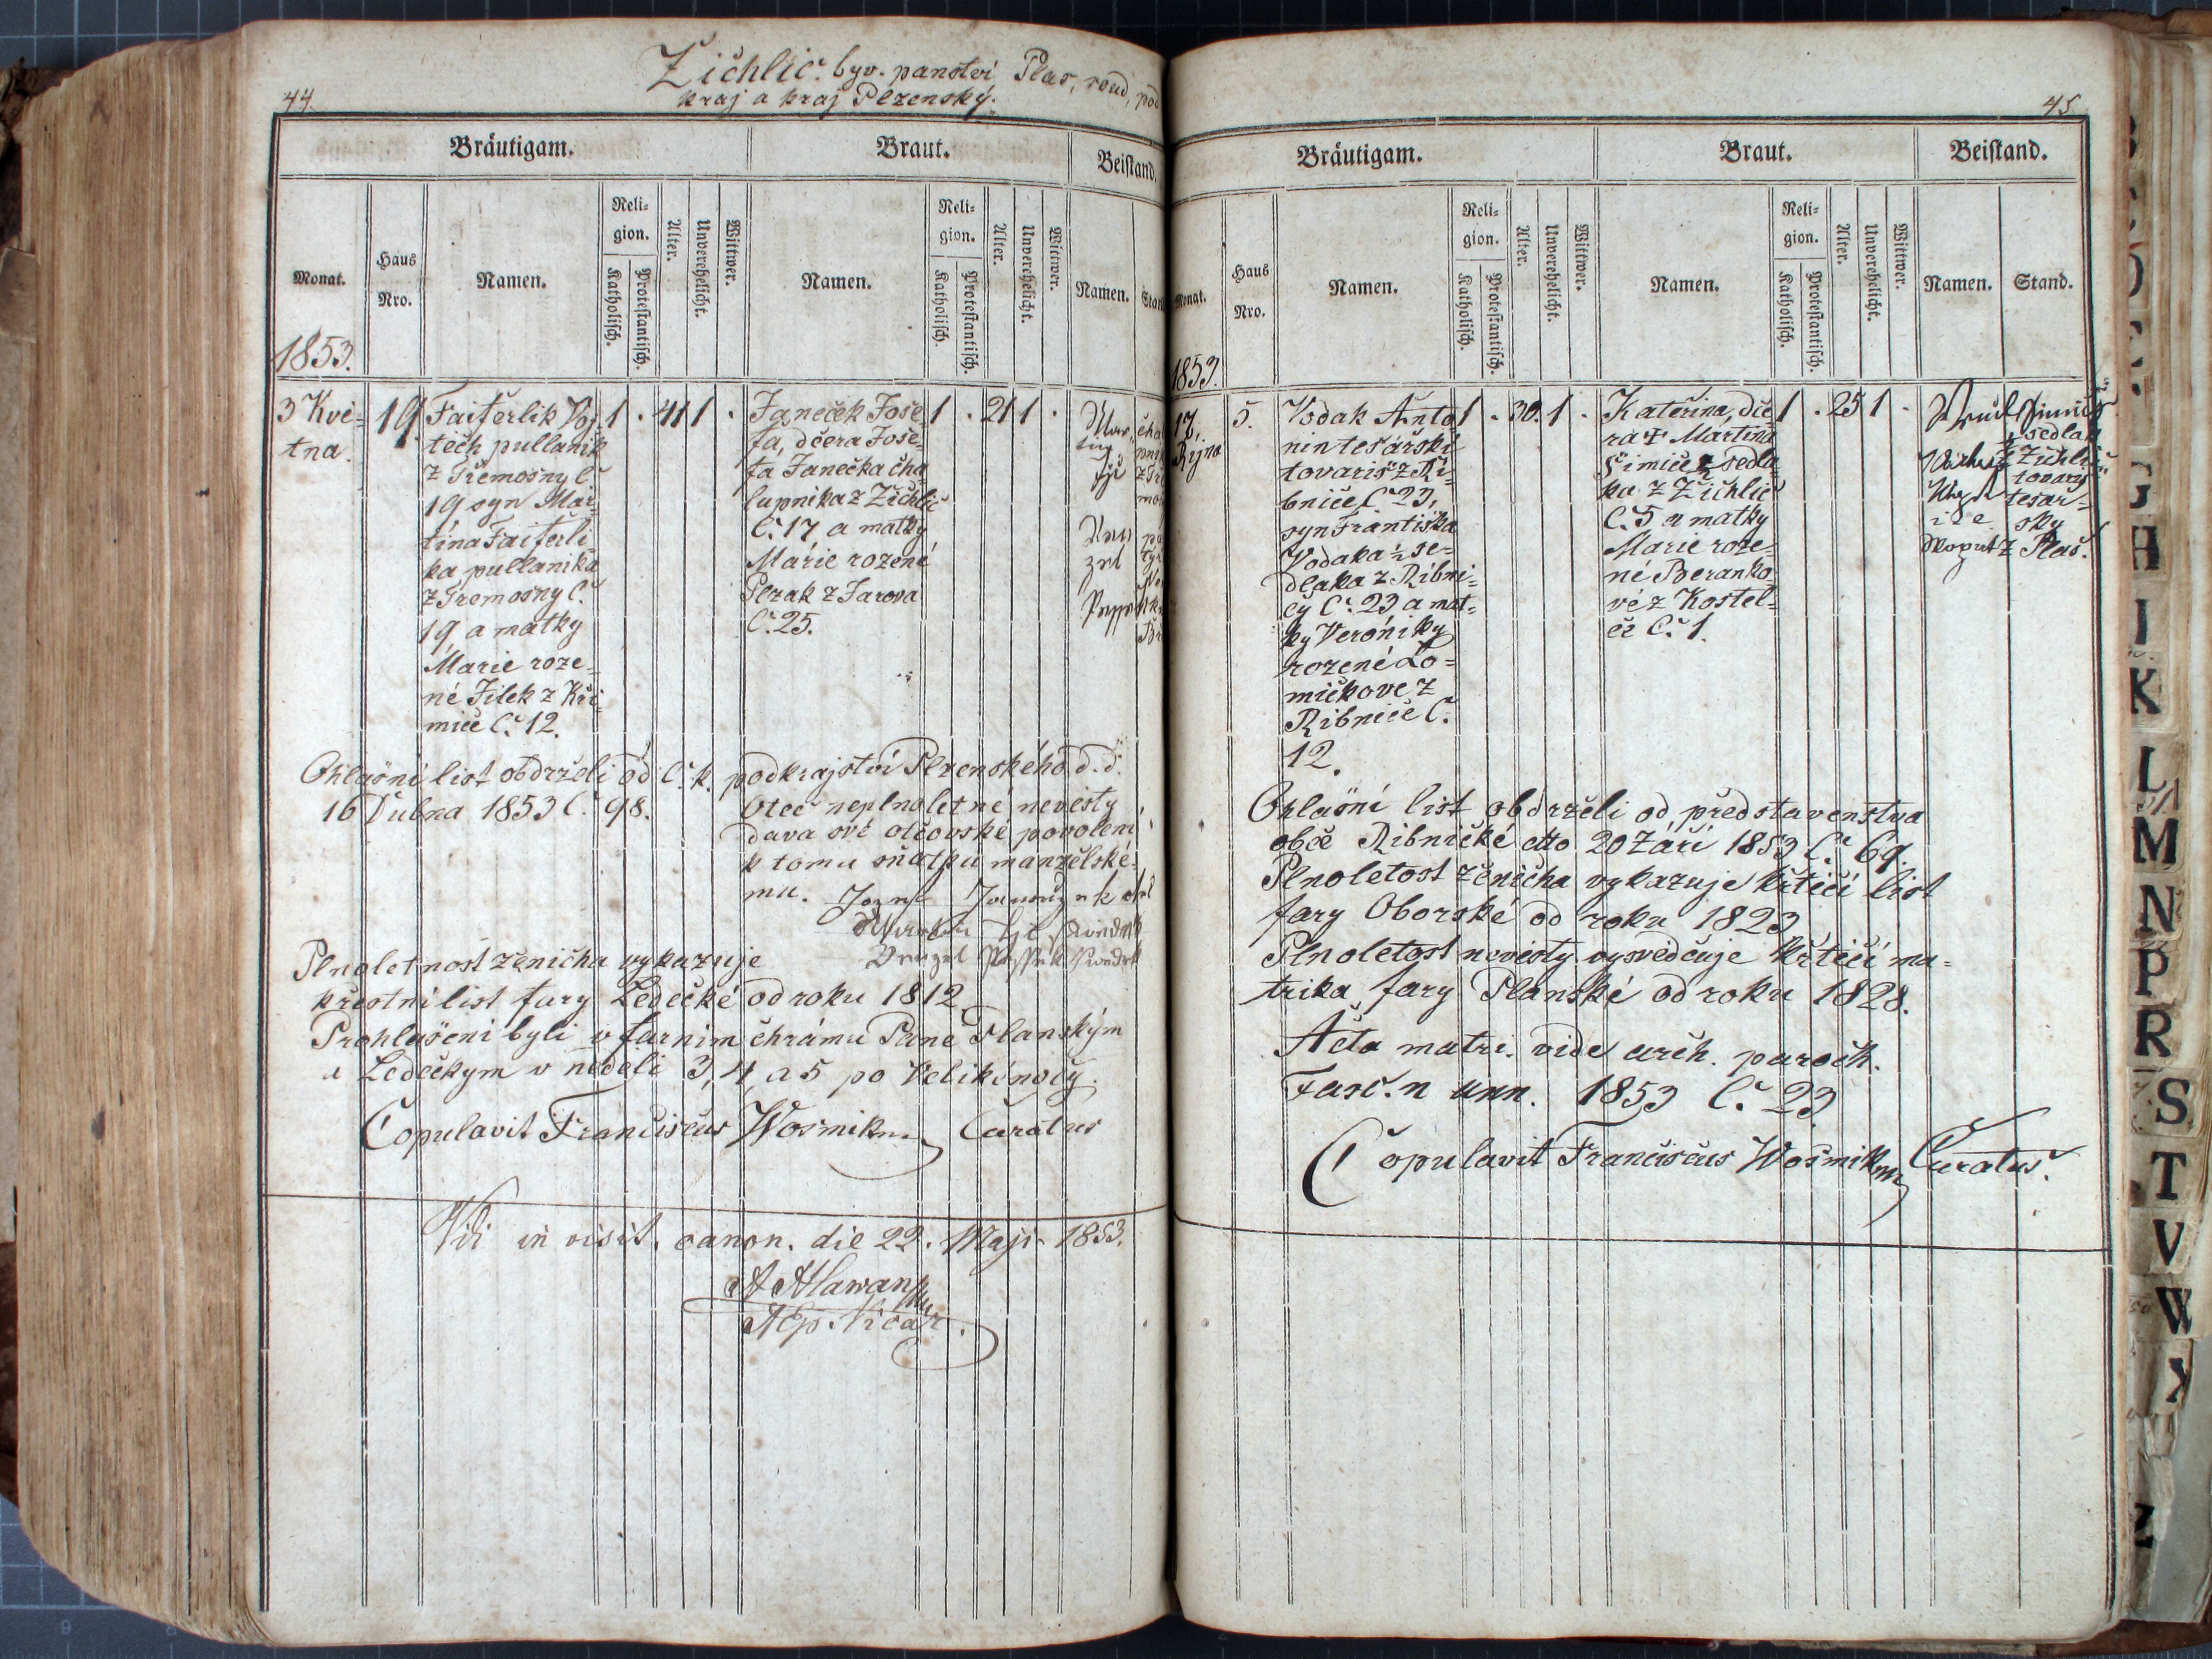 44.
Žichlic. byv. panství Plas, soud, pod
kraj a kraj Plzenský.
Bräutigam.
Braut.
Beistand.
Monat.
Haus Nro.
Namen.
Religion.
Katholisch.
Protestantisch.
Alter.
Unverehelicht.
Wittwer.
Namen.
Religion.
Katholisch.
Protestantisch.
Alter.
Unverehelicht.
Wittwer.
Namen.
Stand
1853.
3 Kvě-
tna.
19.
Faiferlik Voj-
těch pullanik
z Třemosny Č.
19 syn Mar-
tina Faiferli
ka pullanika
z Tremosny Č.
19, a matky
Marie roze-
né Jilek z Kři-
mič Č. 12.
1 . 41 1 .
Janeček Jose-
fa, dčera Jose-
fa Janečka cha
lupnika z Žichlic
Č. 17, a matky
Marie rozené
Plzak z Jarova
Č. 25.
1 . 21 1 .
Mar-
tin
Ohlasní list obdrželi od C. k. podkrajství Plzenského d.d.
16 Dubna 1853 Č. 98.
Otec neplnoletné nevěsty
dava své otcovské povolení
k tomu sňatku manželské-
mu.
Plnoletnost ženicha vykazuje
křestní list fary Ledečké od roku 1812
Prohlašeni byli v farním chrámu Páně Planským
a Ledeckym v neděli 3, 4, a 5 po Velikénocy.
Copulavit Franciscus Wosmik Curatus
Vidi in visit. canon. die 22. Maji 1853.
45
Bräutigam.
Braut.
Beistand.
Monat.
Haus Nro.
Namen.
Religion.
Katholisch.
Protestantisch.
Alter.
Unverehelicht.
Wittwer.
Namen.
Religion.
Katholisch.
Protestantisch.
Alter.
Unverehelicht.
Wittwer.
Namen.
Stand.
1853.
17.
Rijna
5.
Vodak Anto-
nin tesařski
tovariš z Ri-
bnice Č. 23,
syn Františka
Vodaka ½ se-
dlaka z Ribni-
cy Č. 23 a mat-
ky Veróniky
rozené Lo-
mičkove z
Ribnice Č.
12.
1 . 30. 1 .
Kateřina, dce
ra † Martina
Šimice ½ sedla
ka z Žichlic
Č. 5 a matky
Marie roze-
né Beranko-
vé z Kostel-
ce Č. 1.
1 . 25 1 .
½ sedlak
z Žichlic
tovariš
tesař-
sky
z Plas.
Ohlasní list obdrželi od představenstva
obce Ribnické dtto 20 Září 1853 Č. 69.
Plnoletost ženicha vykazuje křtící list
fary Oborské od roku 1823
Plnoletost nevěsty vysvedčuje křtící ma-
trika fary Planské od roku 1828.
Acta matri. vide arch. paroch.
Fasc. n ann. 1853 Č. 23
Copulavit Franciscus Wosmik Curatus.
H
I
K
L
M
N
P
R
S
T
V
W
Z